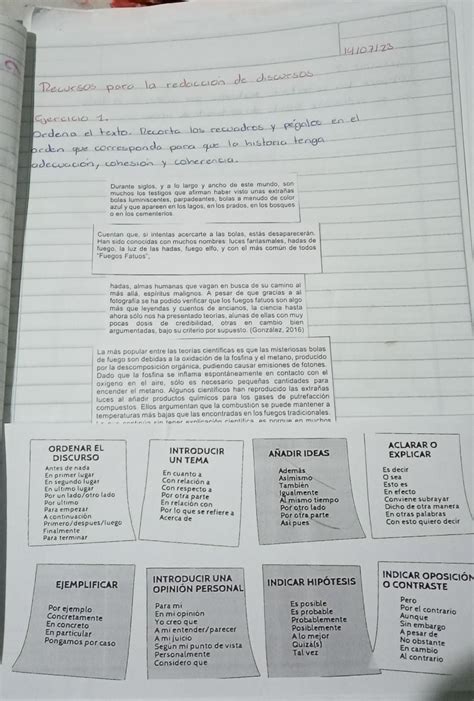 14/07/23
Recursos para la redacción de discursos
Ejercicio 1.
Ordena el texto. Recorta los recuadros y pégalos en el
orden que corresponda para que la historia tenga
adecuación, cohesión y coherencia.
Durante siglos, y a lo largo y ancho de este mundo, son
muchos los testigos que afirman haber visto unas extrañas
bolas luminiscentes, parpadeantes, bolas a menudo de color
azul y que aparecen en los lagos, en los prados, en los bosques
o en los cementerios.
Cuentan que, si intentas acercarte a las bolas, estás desaparecerán.
Han sido conocidas con muchos nombres: luces fantasmales, hadas de
fuego, la luz de las hadas, fuego elfo, y con el más común de todos
"Fuegos Fatuos",
hadas, almas humanas que vagan en busca de su camino al
más allá, espíritus malignos. A pesar de que gracias a al
fotografía se ha podido verificar que los fuegos fatuos son algo
más que leyendas y cuentos de ancianos, la ciencia hasta
ahora sólo nos ha presentado teorías, alunas de ellas con muy
pocas dosis de credibilidad, otras en cambio bien
argumentadas, bajo su criterio por supuesto. (González, 2016)
La más popular entre las teorías científicas es que las misteriosas bolas
de fuego son debidas a la oxidación de la fosfina y el metano, producido
por la descomposición orgánica, pudiendo causar emisiones de fotones.
Dado que la fosfina se inflama espontáneamente en contacto con el
oxígeno en el aire, sólo es necesario pequeñas cantidades para
encender el metano. Algunos científicos han reproducido las extrañas
luces al añadir productos químicos para los gases de putrefacción
compuestos. Ellos argumentan que la combustión se puede mantener a
temperaturas más bajas que las encontradas en los fuegos tradicionales.
sin tener explicación científica es porque en muchos
ORDENAR EL
DISCURSO
Antes de nada
En primer lugar
En segundo lugar
En ultimo lugar
Por un lado/otro lado
Por ultimo
Para empezar
A continuación
Primero/despues/luego
Finalmente
Para terminar
INTRODUCIR
UN TEMA
En cuanto a
Con relación a
Con respecto a
Por otra parte
En relación con
Por lo que se refiere a
Acerca de
AÑADIR IDEAS
Además
Asimismo
También
Igualmente
Al mismo tiempo
Por otro lado
Por otra parte
Asi pues
ACLARAR O
EXPLICAR
Es decir
O sea
Esto es
En efecto
Conviene subrayar
Dicho de otra manera
En otras palabras
Con esto quiero decir
EJEMPLIFICAR
Por ejemplo
Concretamente
En concreto
En particular
Pongamos por caso
INTRODUCIR UNA
OPINIÓN PERSONAL
Para mi
En mi opinión
Yo creo que
A mi entender/parecer
A mi juicio
Según mi punto de vista
Personalmente
Considero que
INDICAR HIPÓTESIS
Es posible
Es probable
Probablemente
Posiblemente
A lo mejor
Quizá(s)
Tal vez
INDICAR OPOSICIÓN
O CONTRASTE
Pero
Por el contrario
Aunque
Sin embargo
A pesar de
No obstante
En cambio
Al contrario